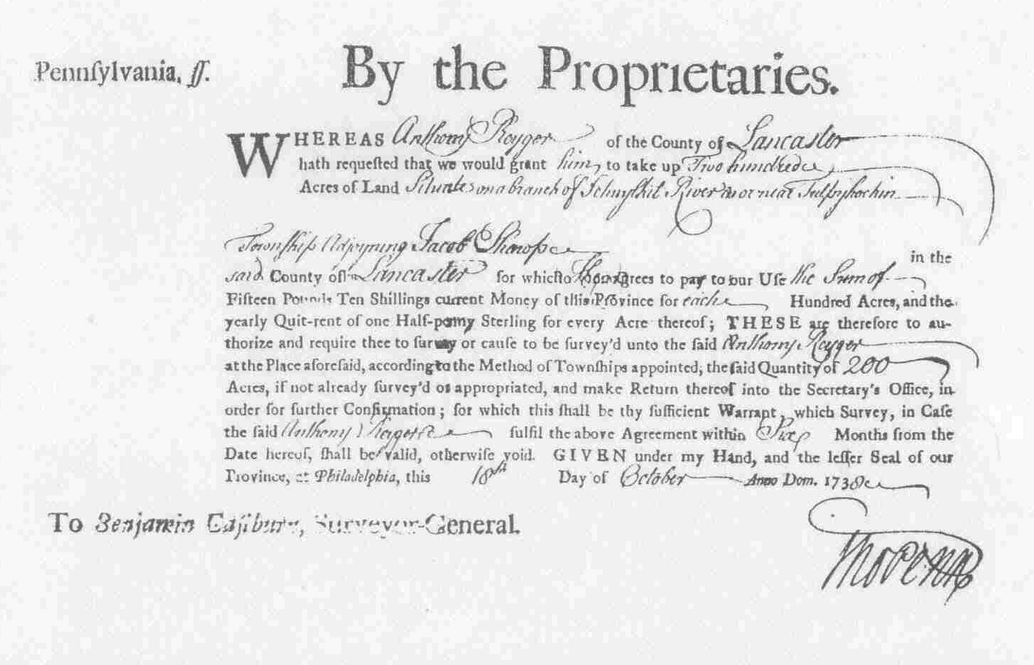 Pennſylvania, ſſ.
By the Proprietaries.
WHEREAS Anthony Reyger of the County of Lancaster
hath requested that we would grant him to take up Two hundred
Acres of Land Situate on a branch of Schuylkil River at or near Tulpyhockin
Township Adjoyning Jacob
in the
said County of Lancaster for which he agrees to pay to our Use the Sum of
Fifteen Pounds Ten Shillings current Money of this Province for each Hundred Acres, and the
yearly Quit-rent of one Half-penny Sterling for every Acre thereof; THESE are therefore to au-
thorize and require thee to survey or cause to be survey'd unto the said Anthony Reyger
at the Place aforeſaid, according to the Method of Townſhips appointed, the ſaid Quantity of 200
Acres, if not already ſurvey'd or appropriated, and make Return thereof into the Secretary's Office, in
order for further Confirmation; for which this ſhall be thy ſufficient Warrant, which Survey, in Caſe
the ſaid Anthony Reyger fulfil the above Agreement within Six Months from the
Date hereof, ſhall be valid, otherwiſe void. GIVEN under my Hand, and the leſſer Seal of our
Province, at Philadelphia, this 18th Day of October Anno Dom. 1738
To Benjamin Eaſtburn, Surveyor-General.
Tho Penn